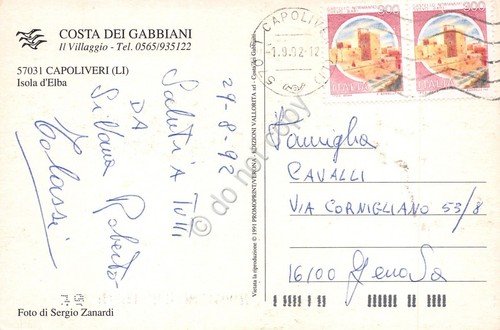 COSTA DEI GABBIANI
Il Villaggio - Tel. 0565/935122
57031 CAPOLIVERI (LI)
Isola d'Elba
29-8-92
Saluti A Tutti
DA
Silvana Roberto
Colassi
Foto di Sergio Zanardi
Vietata la riproduzione © 1991 PROMOPRINT/VERONA - EDIZIONI VALLORITA srl - Costa dei Gabbiani
CAPOLIVERI
1.9.92-12
300
300
ITALIA
ITALIA
Famiglia
CAVALLI
VIA CORNIGLIANO 53/8
16100 Genova
do not copy